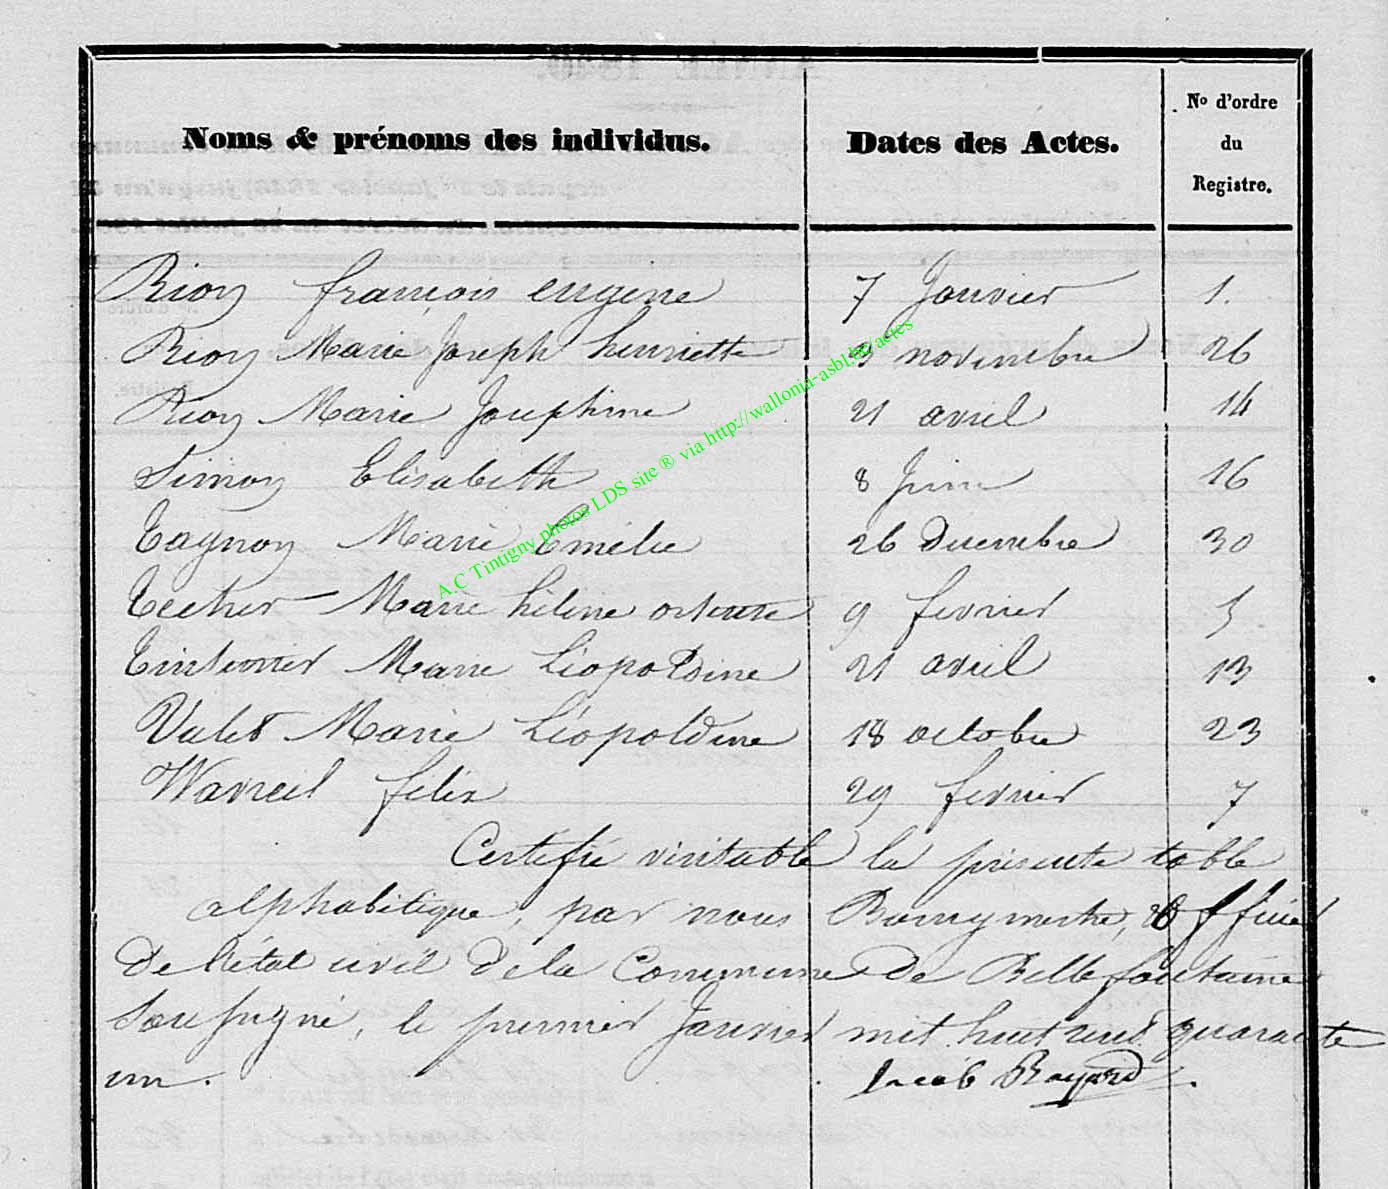 Noms & prénoms des individus. Dates des Actes. No d'ordre du Registre.
Rion françois eugene 7 Janvier 1.
Rion Marie Joseph henriette 3 novembre 26
Rion Marie Josephine 21 avril 14
Simon Elisabeth 8 Juin 16
Tagnon Marie Emélie 26 Decembre 30
Marie hélene 9 fevrier 5
Marie Léopoldine 21 avril 13
Valet Marie Léopoldine 18 octobre 23
felix 29 fevrier 7
Certifié véritable la présente table
alphabétique, par nous Bourgmestre, officier
De l'état civil De la Commune De Bellefontaine
Soussigné, le premier Janvier mil huit cent quarante
un. Jacob Bayard
A.C Tintigny photos LDS site ® via http://wallonia-asbl.be/actes